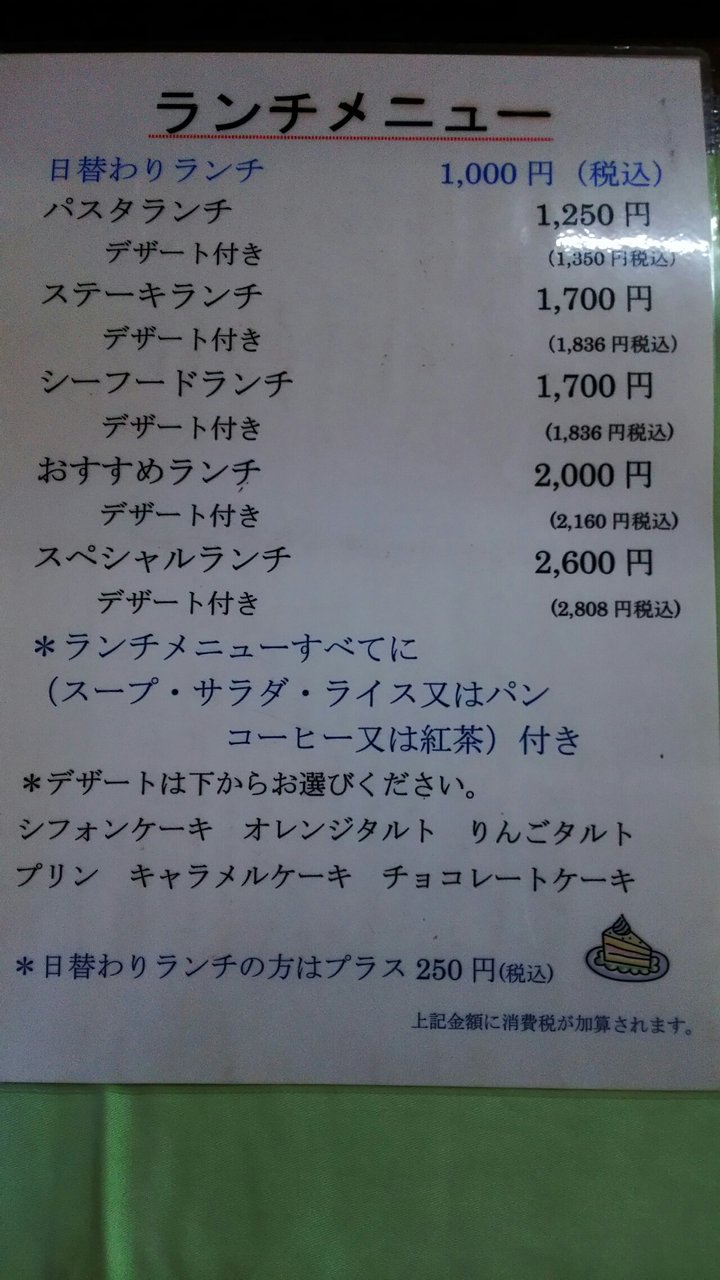 ランチメニュー
日替わりランチ 1,000 円（税込）
パスタランチ 1,250 円
デザート付き (1,350 円税込)
ステーキランチ 1,700 円
デザート付き (1,836 円税込)
シーフードランチ 1,700 円
デザート付き (1,836 円税込)
おすすめランチ 2,000 円
デザート付き (2,160 円税込)
スペシャルランチ 2,600 円
デザート付き (2,808 円税込)
＊ランチメニューすべてに
（スープ・サラダ・ライス又はパン
コーヒー又は紅茶）付き
＊デザートは下からお選びください。
シフォンケーキ オレンジタルト りんごタルト
プリン キャラメルケーキ チョコレートケーキ
＊日替わりランチの方はプラス 250 円(税込)
上記金額に消費税が加算されます。